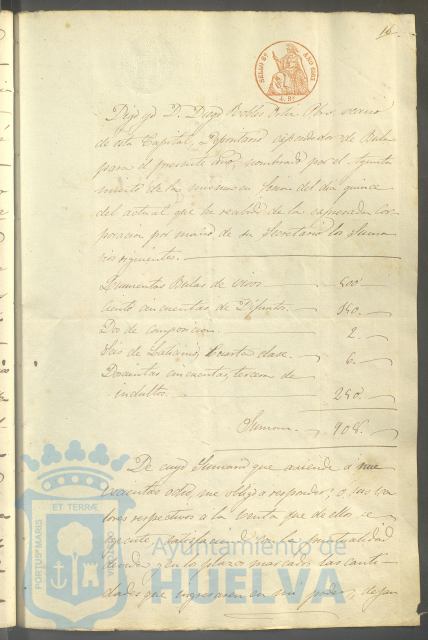 16
SELLO 8º AÑO 1861
4 Rs
Digo yo D. Diego Robles Ortiz Pbro, vecino
de esta Capital, Depositario espendedor de Bulas
para el presente año, nombrado por el Ayunta
miento de la misma en sesion del dia quince
del actual que he recibido de la espresada Cor-
poracion por mano de su Secretario los suma
rios siguientes.
Quinientas Bulas de vivos 500
Ciento cincuenta de Difuntos 150.
Dos de composicion 2.
Seis de Lacticinio, Cuarta clase 6.
Doscientas cincuenta, tercera de
indultos 250.
Suman 908.
De cuyo Sumario que asciende á nue
vecientas ocho, me obligo á responder, ó sus va
lores respectivos á la venta que de ellos se
ejecute, satisfaciendo con la puntualidad
devida y en los plazos marcados las canti-
dades que ingresaren en mi poder, dejan
PORTUS MARIS ET TERRÆ
Ayuntamiento de
HUELVA